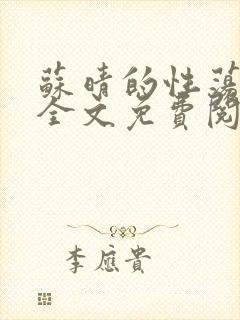 蘇晴的性蕩
全文免費閱
李應貴